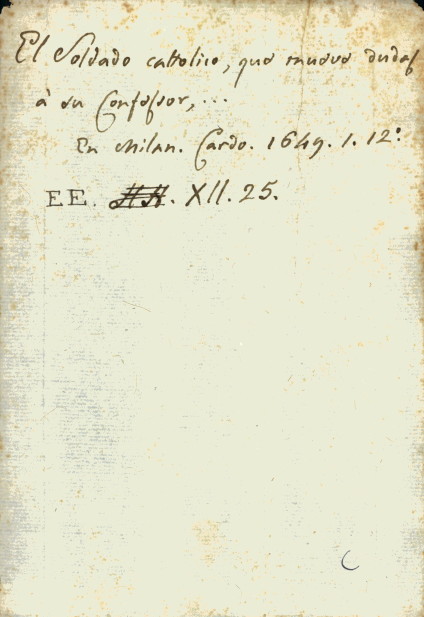 El Soldado cattolico, que mueve dudas
à su Confessor,...
En Milan. Cardo. 1649. 1. 12°.
EE. XII. 25.